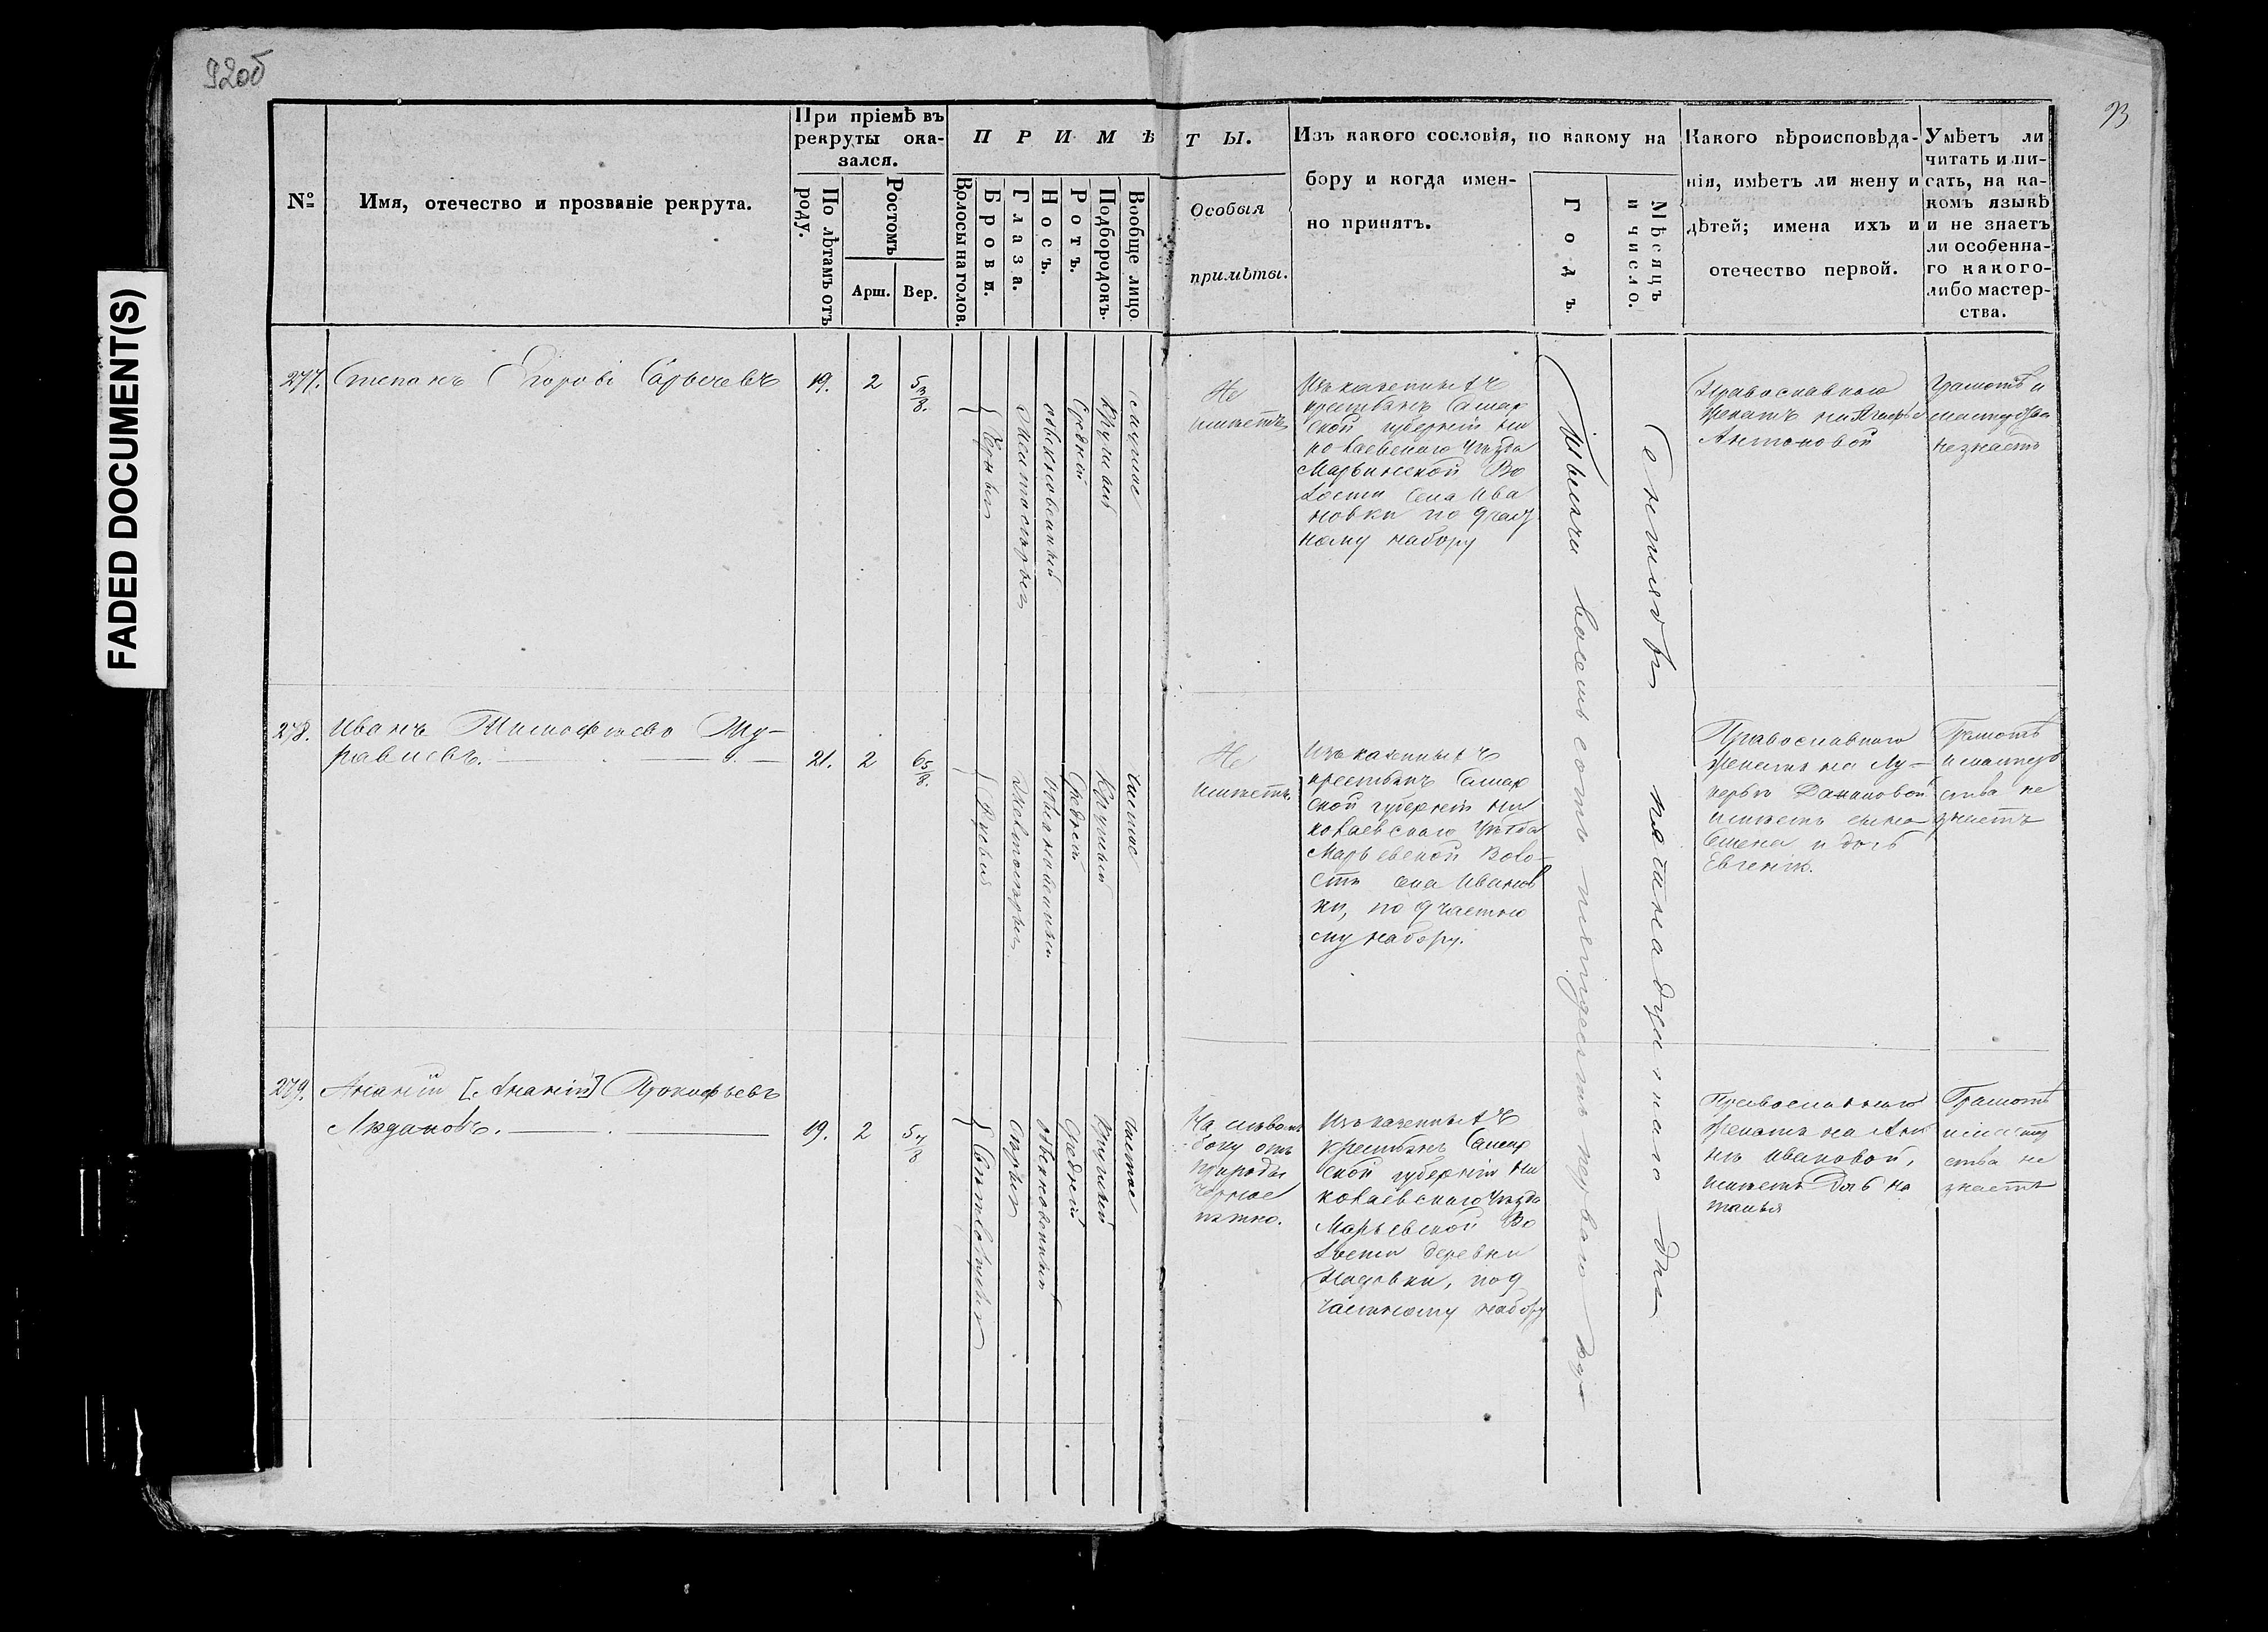 92об
93
FADED DOCUMENT(S)
№
Имя, отечество и прозваніе рекрута.
При пріемѣ въ
рекруты ока-
зался.
По лѣтамъ отъ
роду.
Ростомъ
Арш. Вер.
ПРИМѢТЫ.
Волосы на голов.
Брови.
Глаза.
Носъ.
Ротъ.
Подбородокъ.
Вообще лицо.
Особыя
примѣты.
Изъ какого сословія, по какому на
бору и когда имен-
но принятъ.
Годъ.
Мѣсяцъ
и число.
Какого вѣроисповѣда-
нія, имѣетъ ли жену и
дѣтей; имена ихъ и
отечество первой.
Умѣетъ ли
читать и пи-
сать, на ка-
комъ языкѣ
и не знаетъ
ли особенна-
го какого-
либо мастер-
ства.
277. Степанъ Егоровъ
19. 2 5 3/8.
Черныя
обыкновенный
Средній
Круглый
Не
имѣетъ
Изъ казенныхъ
крестьянъ Самар
ской губерніи Ни
колаевскаго Уѣзда
Во
лости Села Ива
новки по 9 част
ному набору
Тысяча восемьсотъ пятьдесятъ перваго года
Сентября пятнадцатаго дня
Православнаго
Женатъ на
Антоновой
Грамотѣ и
мастерства
незнаетъ
278. Иванъ Тимофѣевъ Му-
равлевъ.
21. 2 6 5/8.
Русыя
Средній
Круглый
Чистое
Не
имѣетъ
Изъ казенныхъ
крестьянъ Самар
ской губерніи Ни
колаевскаго Уѣзда
Марьевской Воло-
сти Села Иванов
ки, по 9 частно
му набору.
Православнаго
Женатъ на Лу-
керьѣ
имѣетъ сына
Семена и дочь
Евгенію.
Грамотѣ
и мастер
ства не
знаетъ
279. Ананій [Ананій] Прокофьевъ
19. 2 5 7/8
Свѣтлорусыя
Сѣрыя
обыкновенный
Средній
Круглый
Чистое
На лѣвомъ
боку отъ
природы
черное
пятно.
Изъ казенныхъ
крестьянъ Самар
ской губерніи Ни
колаевскаго Уѣзда
Марьевской Во
лости деревни
по 9
частному набору
Православнаго
Женатъ на Ан
нѣ Ивановой,
имѣетъ дочь На
талья
Грамотѣ
и маст
ства не
знаетъ